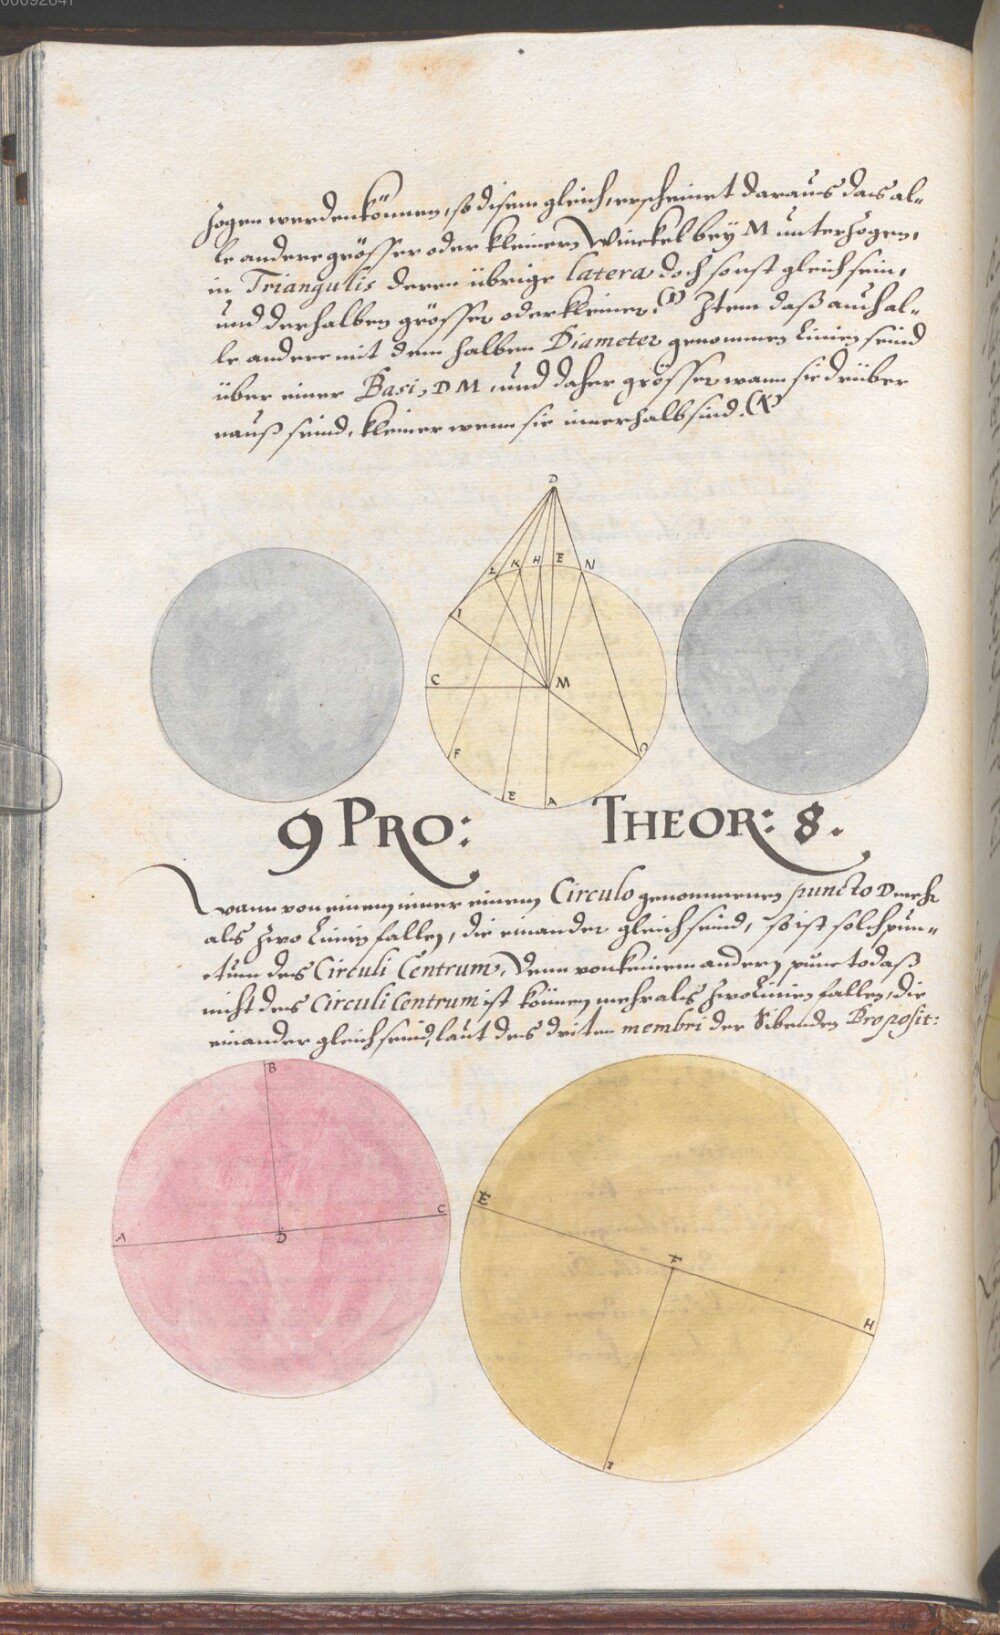 00092641
zogen werden können, so disem gleich, erscheinet daraus das al-
le andere grösser oder kleinern Winckel bey M unterzogen,
in Triangulis deren übrige latera doch sonst gleich sein,
und derhalben grösser oder kleiner. Item daß auch al-
le andere mit dem halben Diameter genommen Linien seind
über einer Basi, DM, und daher grösser wann sie drüber
nauß seind, kleiner wenn sie innerhalb sind.
D
L K H E N
I
C M
F O
E A
9 PRO: THEOR: 8.
Wann von einem inner einem Circulo genommenen puncto D mehr
als zwo Linien fallen, die einander gleich seind, so ist solch pun-
ctum des Circuli Centrum, Denn von keinem andern puncto daß
nicht des Circuli Centrum ist können mehr als zwo Linien fallen, die
einander gleich seind, laut des driten membri der Sibenden Proposit:
B
E
A D C
F
H
I